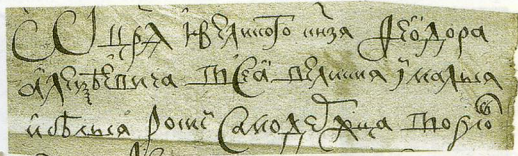 От цр҃я и великого кнѧзя Ѳеодора
Алеѯѣевича всеа великия и малыя
и бѣлыя росиї самодержца в